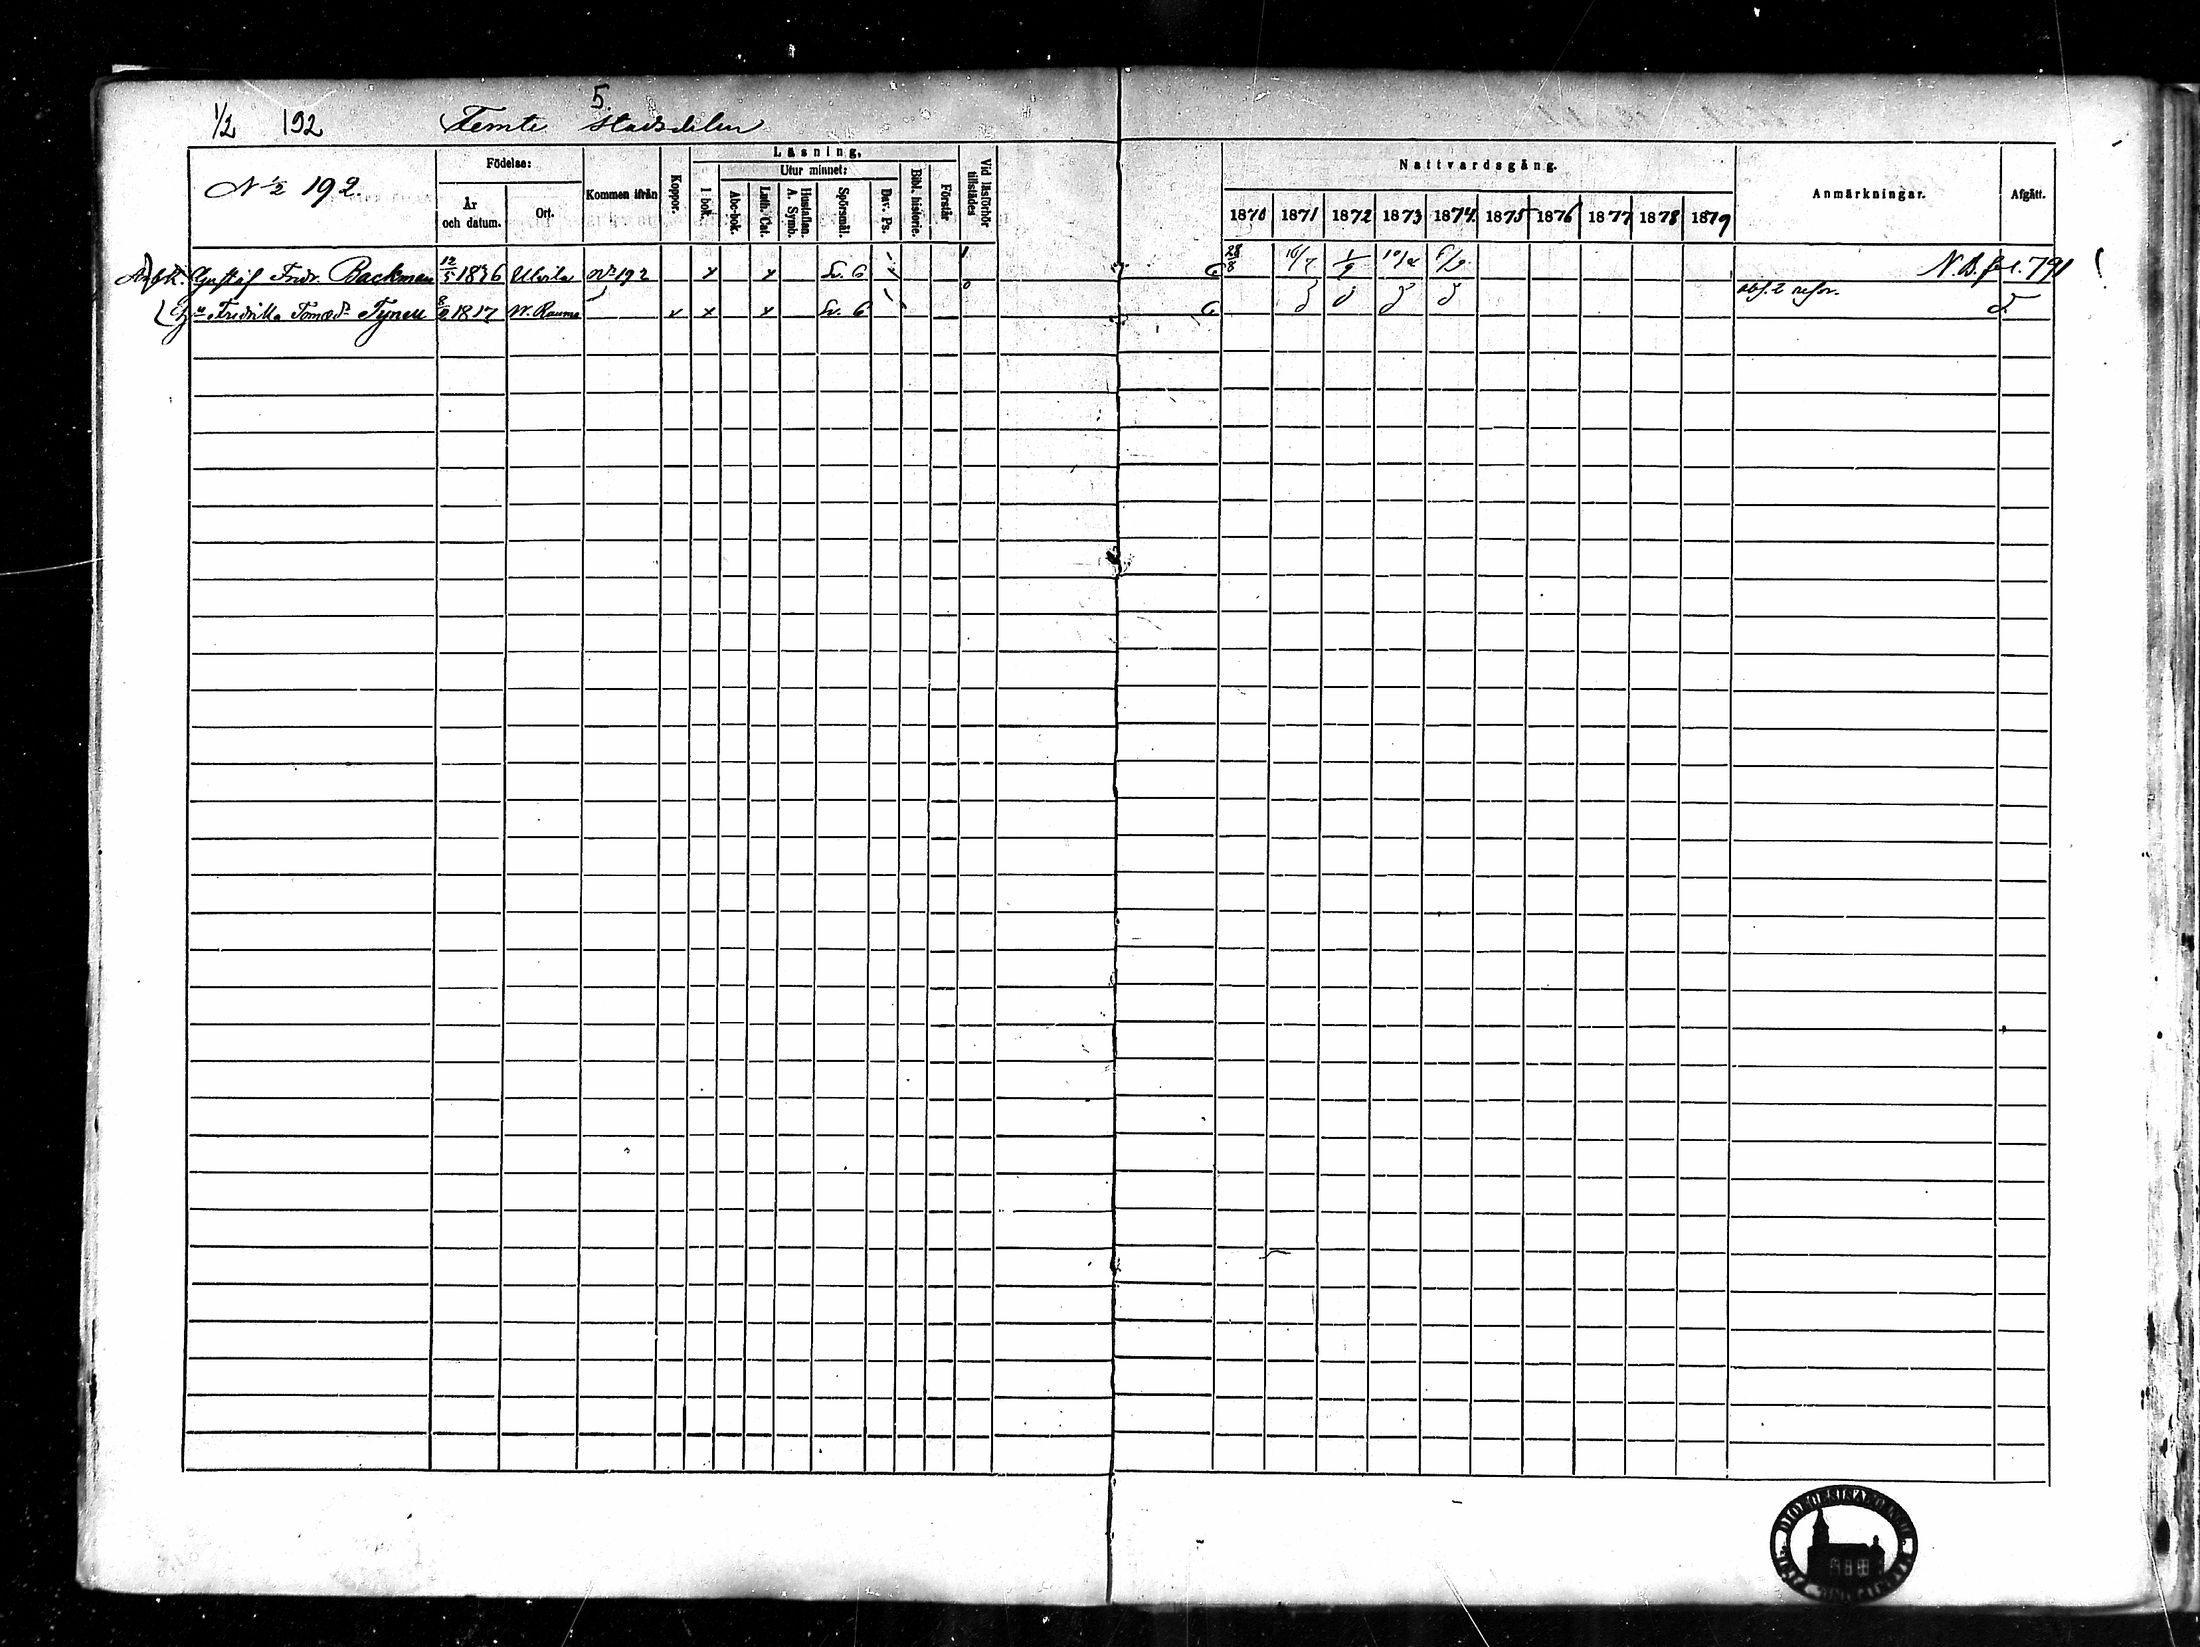 5.
1/2 192 Femte stadsdelen
N 1/2 192.
Födelse:
År och datum.
Ort.
Kommen ifrån
Koppor.
Läsning,
I bok.
Utur minnet:
Abc-bok.
Luth. Cat.
Hustaflan. A. Symb.
Spörsmål.
Dav. Ps.
Bibl. historie.
Förstår
Vid läsförhör tillstädes
Nattvardsgång.
1870 1871 1872 1873 1874 1875 1876 1877 1878 1879
Anmärkningar.
Afgått.
Gustaf Fredr. Backman 12/5 1836 Ulvila N:o 192 x x Sv. C x 1 C 28/8 16/7 1/9 N.B. fol. 791
Hu Fredrika Tomasd:r Tynell 8/2 1817 W. Rauma x x x Sv. C 0 C